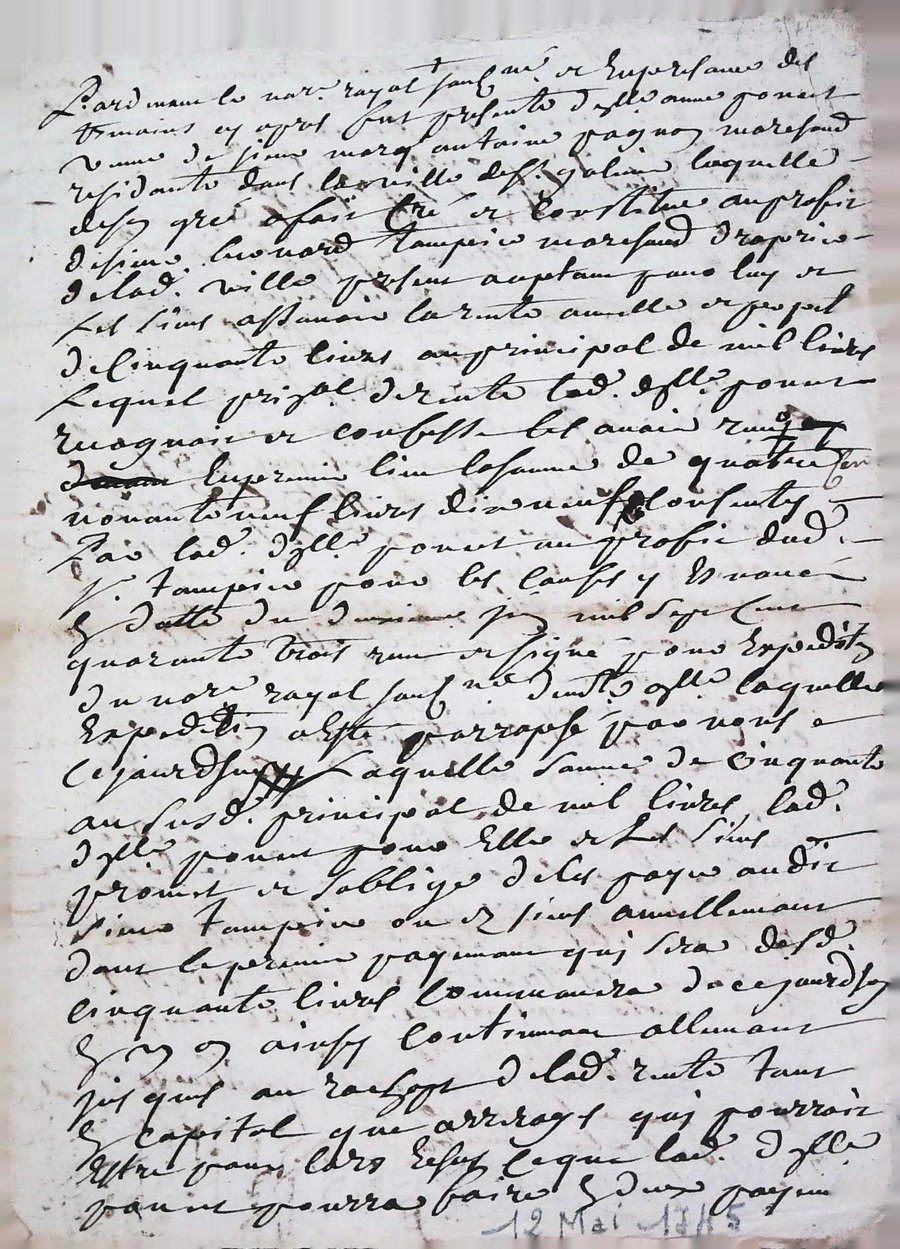 Pardevant le nore. royal soubs né. et En presance des
temoins cy apres fut presente dglle anne poncet
veuve de sieur marq antoine pagnon marchand
residante dans la ville de st. galmier laquelle
de son gré a fait Créé et Constitue au profit
de sieur leonard tampier marchand drapier
de lad. ville present acceptant pour luy et
Les siens assavoir la rente annuelle et perpel
de Cinquante livres au principal de mil livres
Lequel prispl. de rente lad. dglle. poncet
recognoit et confesse les avoir reçu
En premier lieu la somme de quatre Cen
nonante neuf livres dix neuf sols
Par lad. dglle. poncet au profit dud.
sr. tampier pour les Causes y Enoncé
En datte du deuxieme jer mil sept Cent
quarante trois reçue et signé pour Expedition
du nore royal soub né dente dglle laquelle
Expedition a Esté parraphé par nous
Cejourdhuy Laquelle somme de Cinquante
au susd. principal de mil livres lad.
dglle. poncet pour Elle et Les siens
promet et soblige de les payer au dit
sieur tampier ou es siens annuellement
dont le premier payement qui sera desd.
cinquante livres Commancera de ce jourdhuy
En un an ainsy Continuant allement
jusques au rachapt de lad. rente tant
En capital que arrerages qui pourroit
Estre pour lors Echus Ce que lad. dglle
poncet pourra faire En deux payem
12 Mai 1745